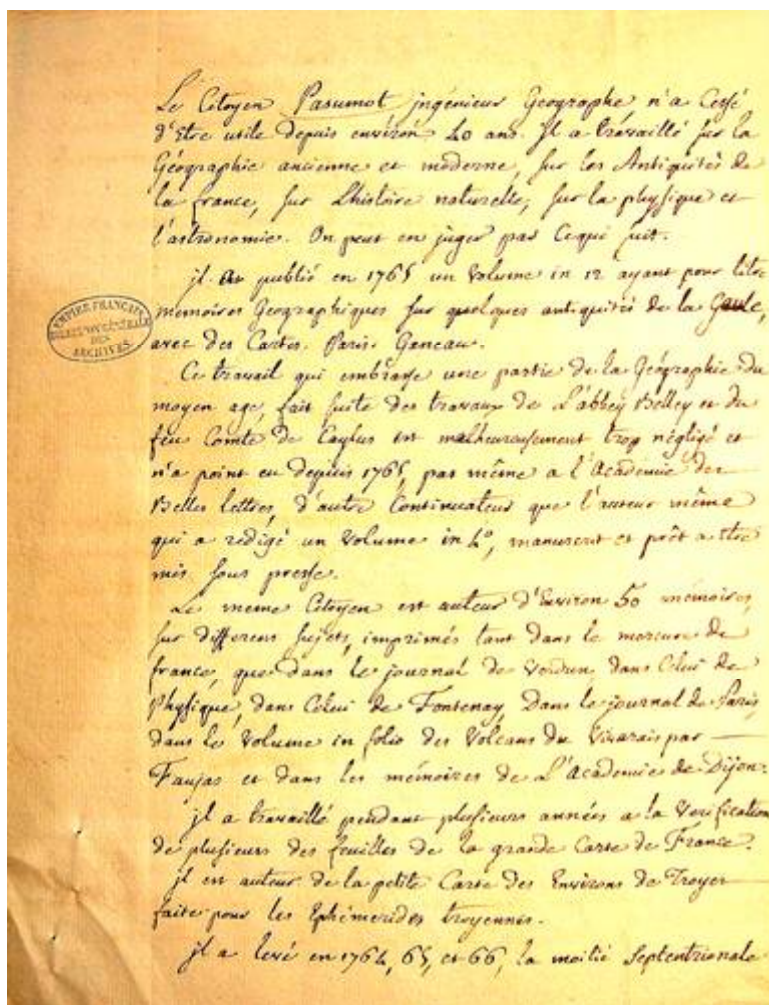 Le Citoyen Pasumot jngénieur Geographe, n'a Cessé
d'Etre utile depuis environ 40 ans. jl a travaillé sur la
Géographie ancienne et moderne, sur les Antiquités de
la france, sur L'histoire naturelle, sur la physique et
l'astronomie. On peut en juger par Cequi suit.
jl a publié en 1765 un Volume in 12 ayant pour titre
memoires Geographiques sur quelques antiquités de la Gaule,
avec des Cartes. Paris. Ganeau.
EMPIRE FRANÇAIS
DIRECTION GÉNÉRALE
DES
ARCHIVES
Ce travail qui embrasse une partie de la Géographie du
moyen age, fait suite des travaux de L'abbey Belley et du
feu Comte de Caylus est malheureusement trop négligé et
n'a point eu depuis 1765, pas même a l'Academie des
Belles lettres, d'autre Continuateur que l'auteur même
qui a redigé un Volume in 4°, manuscrit et prêt a Etre
mis sous presse.
Le meme Citoyen est auteur d'Environ 50 mémoires,
sur differens sujets, imprimés tant dans le mercure de
france, que dans le journal de Verdun, dans Celui de
Physique, dans Celui de Fontenay, Dans le journal de Paris,
dans le Volume in folio des Volcans du Vivarais par
Faujas et dans les mémoires de L'Academie de Dijon.
jl a travaillé pendant plusieurs années a la Verification
de plusieurs des feuilles de la grande Carte de France.
jl est auteur de la petite Carte des Environs de Troyes
faite pour les Ephémerides troyennes.
jl a levé en 1764, 65, et 66, la moitié Septentrionale